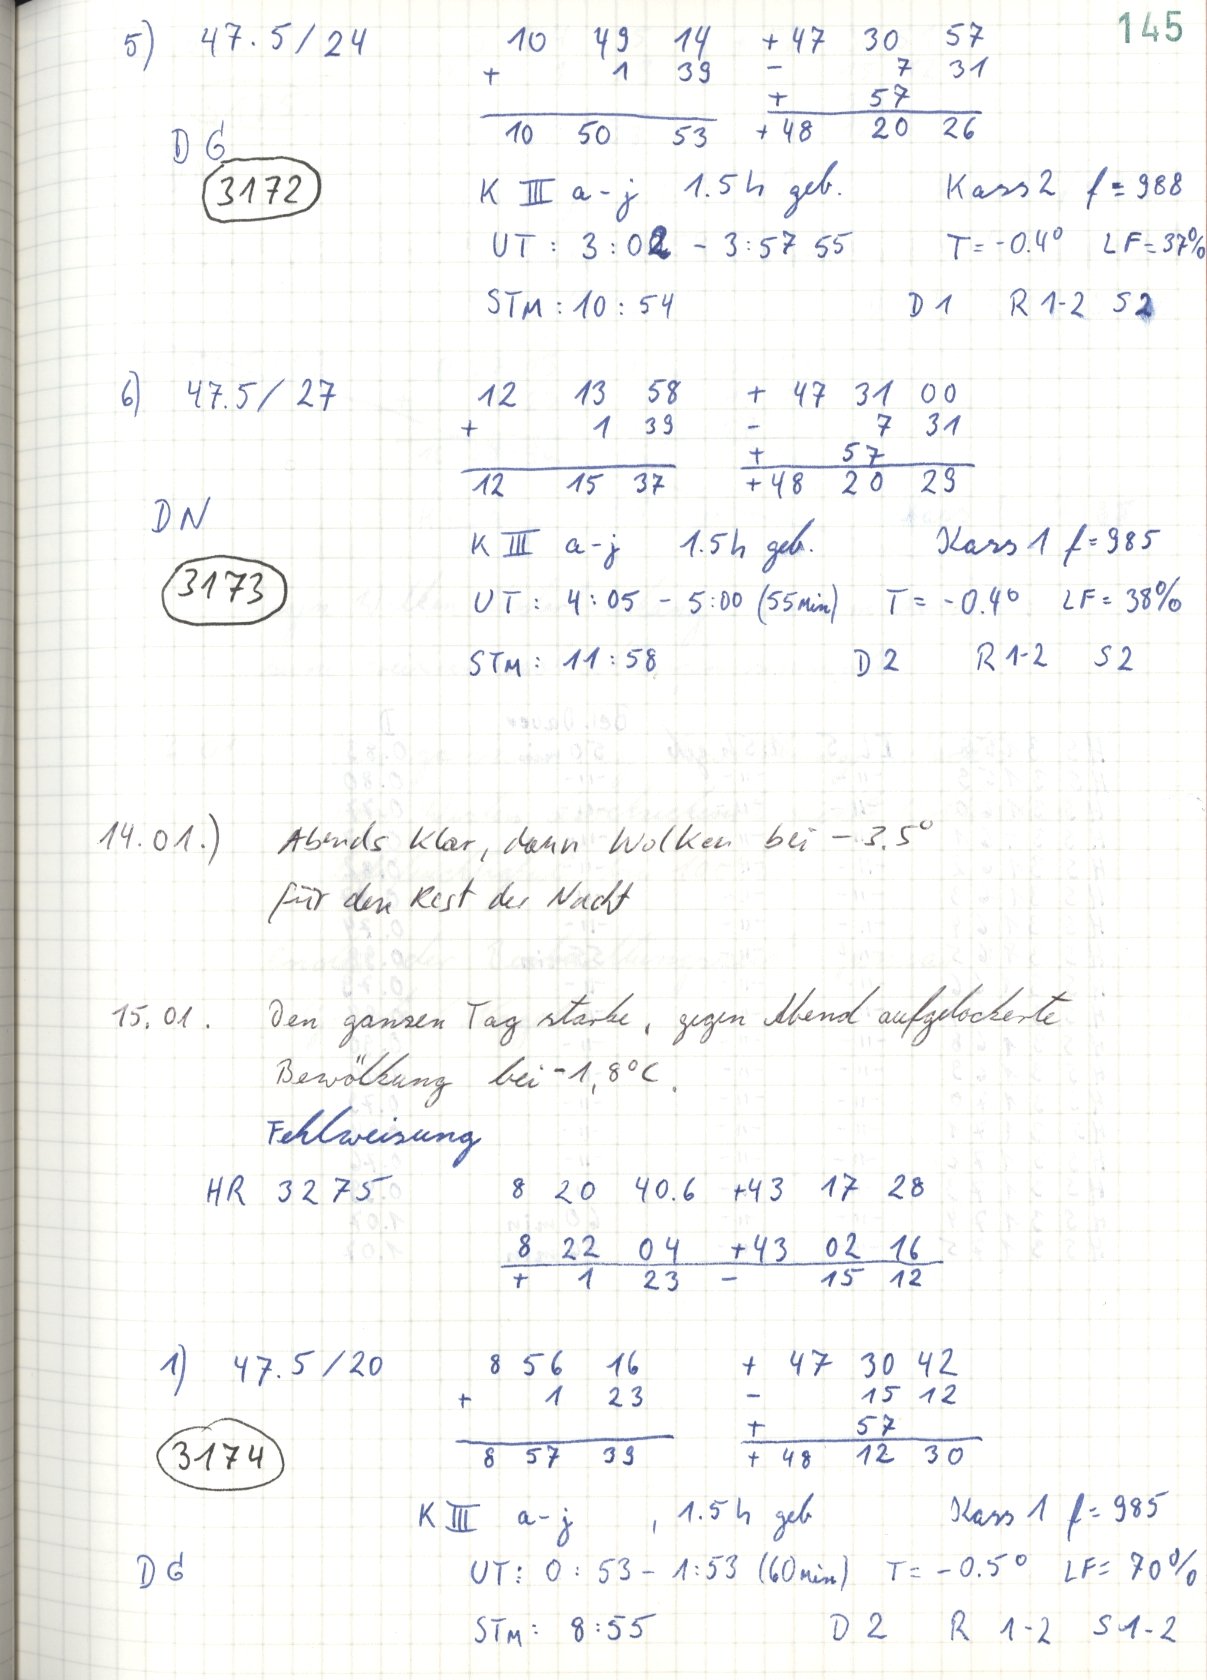 145
5) 47.5/24 10 49 14 +47 30 57
+ 1 39 - 7 31
+ 57
10 50 53 +48 20 26
DG
3172
K III a-j 1.5h geb. Kass 2 f=988
UT: 3:02 - 3:57 55 T=-0.4° LF=37%
STM: 10:54 D1 R 1-2 S2
6) 47.5/27 12 13 58 + 47 31 00
+ 1 39 - 7 31
+ 57
12 15 37 +48 20 29
DN
3173
K III a-j 1.5h geb. Kass 1 f=985
UT: 4:05 - 5:00 (55min) T=-0.4° LF=38%
STM: 11:58 D2 R 1-2 S2
14.01.) Abends klar, dann Wolken bei -3.5°
für den Rest der Nacht
15.01. Den ganzen Tag starke, gegen Abend aufgelockerte
Bewölkung bei -1,8°C.
Fehlweisung
HR 3275 8 20 40.6 +43 17 28
8 22 04 +43 02 16
+ 1 23 - 15 12
1) 47.5/20 8 56 16 + 47 30 42
+ 1 23 - 15 12
+ 57
8 57 39 + 48 12 30
3174
K III a-j, 1.5h geb Kass 1 f=985
DG UT: 0:53 - 1:53 (60min) T=-0.5° LF=70%
STM: 8:55 D2 R 1-2 S 1-2